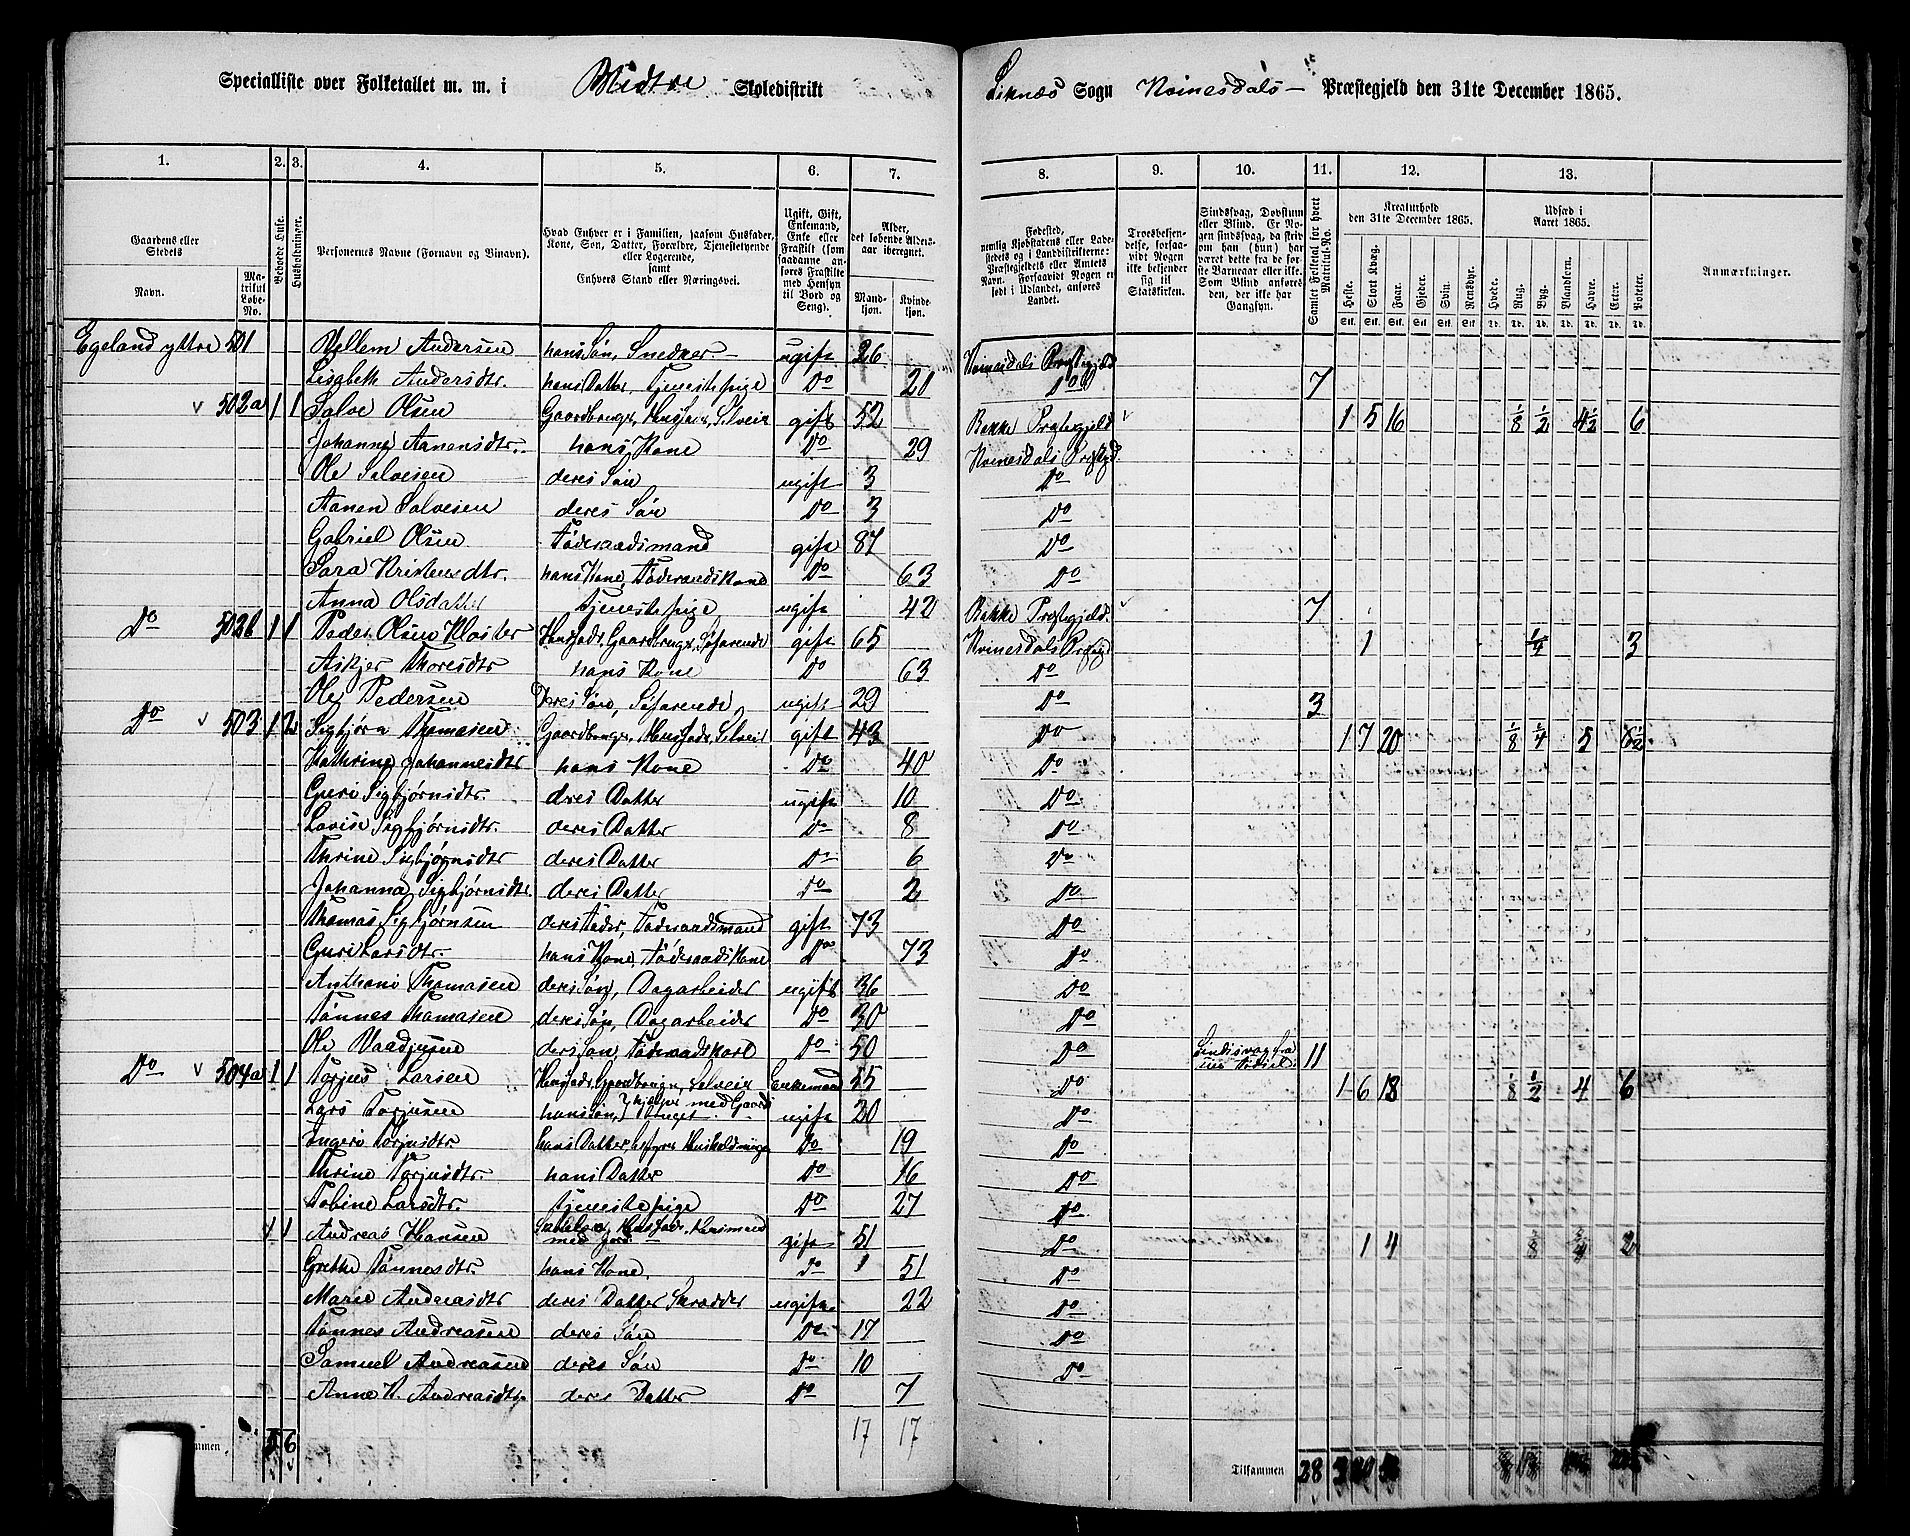 Specialliste over Folketallet m. m. i Midtre Skoledistrikt Liknæs Sogn Kvinesdals Præstegjeld den 31te December 1865.
1. 2. 3. 4. 5. 6. 7. 8. 9. 10. 11. 12. 13.
Gaardens eller Stedets
Navn. Matrikul Løbe-No.
Beboede Huse.
Husholdninger.
Personernes Navne (Fornavn og Binavn).
Hvad Enhver er i Familien, saasom Husfader, Kone, Søn, Datter, Forældre, Tjenestetyende eller Logerende, samt Enhvers Stand eller Næringsvei.
Ugift, Gift, Enkemand, Enke eller Fraskilt (som saadanne anføres Fraskilte med Hensyn til Bord og Seng).
Alder, det løbende Aldersaar iberegnet.
Mandkjøn. Kvindekjøn.
Fødested, nemlig Kjøbstadens eller Ladestedets og i Landdistrikterne: Præstegjeldets eller Amtets Navn. Forsaavidt Nogen er født i Udlandet, anføres Landet.
Troesbekjendelse, forsaavidt Nogen ikke bekjender sig til Statskirken.
Sindssvag, Døvstum eller Blind. Er Nogen sindssvag, da skrives om han (hun) har været dette fra de første Barneaar eller ikke. Som Blind anføres den, der ikke har Gangsyn.
Samlet Folketal for hvert Matrikul-No.
Kreaturhold den 31te December 1865.
Heste. Stort Kvæg. Faar. Gjeder. Svin. Rensdyr.
Udsæd i Aaret 1865.
Hvede. Rug. Byg. Blandkorn. Havre. Erter. Poteter.
Anmærkninger.
Egeland yttre 501 Vellem Andersen hans Søn, Snedker ugift 26 Kvinesdals Prgstegjeld
Lisabeth Andersdtr. hans Datter, Tjenestepige Do 21 Do 7
502a 1 1 Salve Olsen Gaardbruger, Husfader, Selveier gift 52 Bakke Prstegjeld 1 5 16 1/8 1/2 4 1/2 6
Johanne Aanensdtr. hans Kone Do 29 Kvinesdals Prstgjd
Ole Salvesen deres Søn ugift 3 Do
Aanen Salvesen deres Søn Do 3 Do
Gabriel Olsen Føderaadsmand gift 87 Do
Sara Kristensdtr. hans Kone, Føderaadskone Do 63 Do
Anna Olsdatter Tjenestepige ugift 42 Bakke Prstegjeld. 7
Do 502b 1 1 Peder Olsen Kloster Husfader, Gaardbruger, Søfarende gift 65 Kvinesdals Prstgd 1 1/4 3
Askjer Thoresdtr hans Kone Do 63 Do
Ole Pedersen deres Søn, Søfarende, ugift 29 Do 3
Do 503 1 2 Sigbjørn Thomasen Gaardbruger, Husfader, Selveier gift 43 Do 1 7 20 1/8 1/4 5 6 1/2
Kathrine Johannesdtr hans Kone Do 40 Do
Guri Sigbjørnsdtr. deres Datter ugift 10 Do
Lovise Sigbjørnsdtr. deres Datter Do 8 Do
Thrine Sigbjørnsdtr deres Datter Do 6 Do
Johanna Sigbjørnsdtr. deres Datter Do 2 Do
Thomas Sigbjørnsen deres Fader, Føderaadsmand gift 73 Do
Guri Larsdtr. hans Kone, Føderaadskone Do 73 Do
Anthoni Thomasen deres Søn, Dagarbeider ugift 36 Do
Tønnes Thomasen deres Søn, Dagarbeider Do 30 Do
Ole deres Søn, Føderaadskarl Do 50 Do Sindssvag fra 11
Do 504a 1 1 Torjus Larsen Husfader, Gaardbruger, Selveier Enkemand 55 Do 1 6 18 1/8 1/2 4 6
Lars Torjusen hans Søn, hjelper med Gaardsbruget ugift 20 Do
Ingeri Torjusdtr. hans Datter, bestyrer Husholdningen Do 19 Do
Thrine Torjusdtr. hans Datter Do 16 Do
Tobine Larsdtr. Tjenestepige Do 27 Do
1 1 Andreas Hansen Husfader, Husmand med Jord gift 51 Do 1 4 2
Grethe Tønnesdtr. hans Kone. Do 51 Do
Marie Andreasdtr deres Datter Skrædder ugift 22 Do
Tønnes Andreasen deres Søn Do 17 Do
Samuel Andreasen deres Søn Do 10 Do
Anne K. Andreasdtr deres Datter Do 7
5 6 17 17 Tilsammen 28